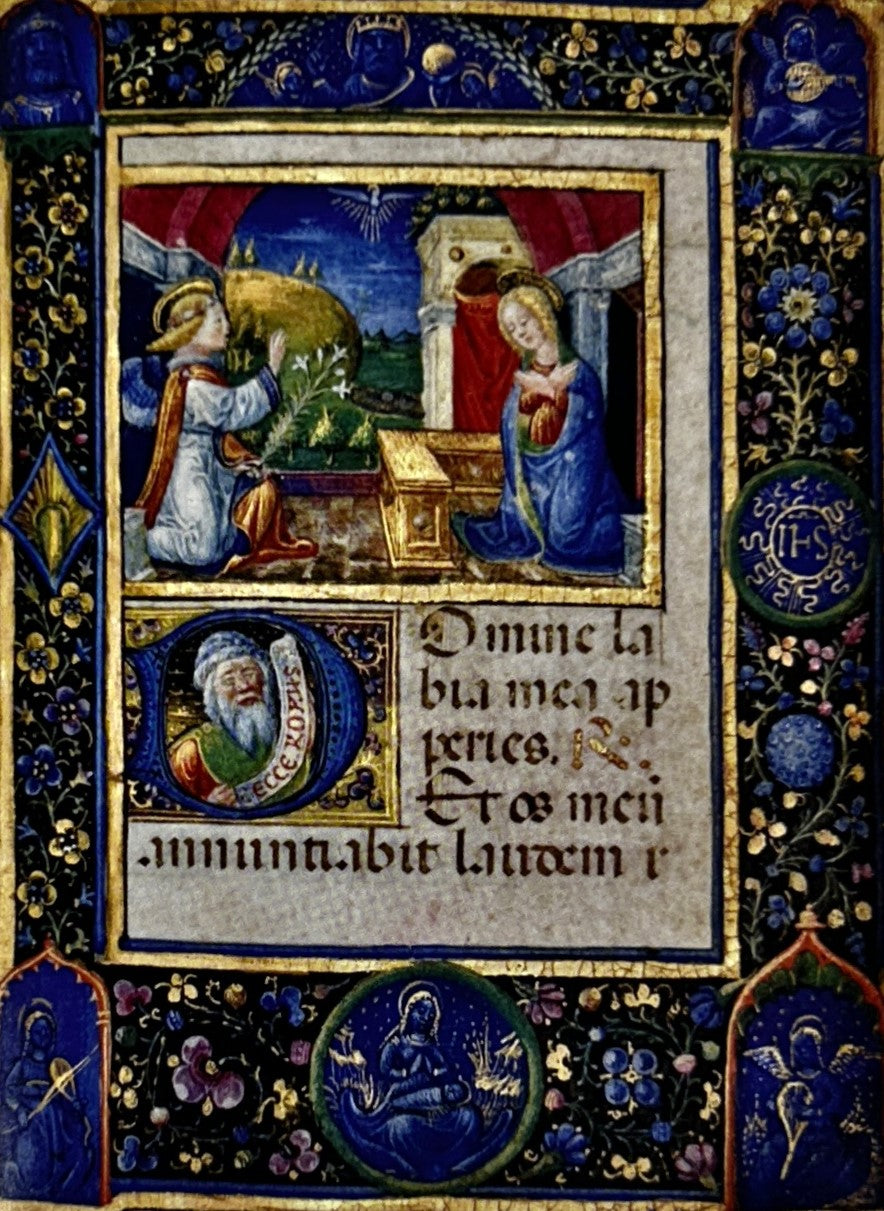 DOmine la
bia mea ap
peries. R.
Et os meū
annuntiabit laudem t
ECCE
IHS